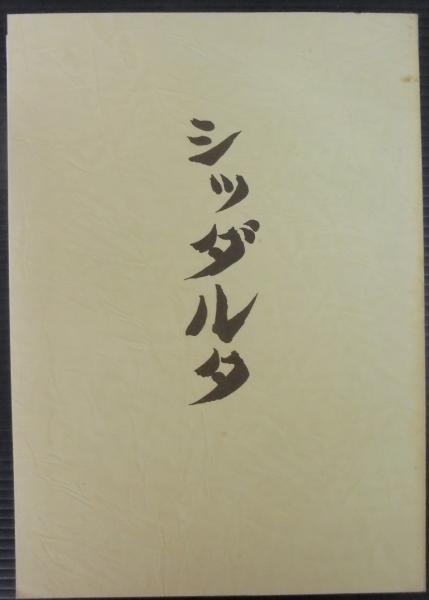 シッダルタ